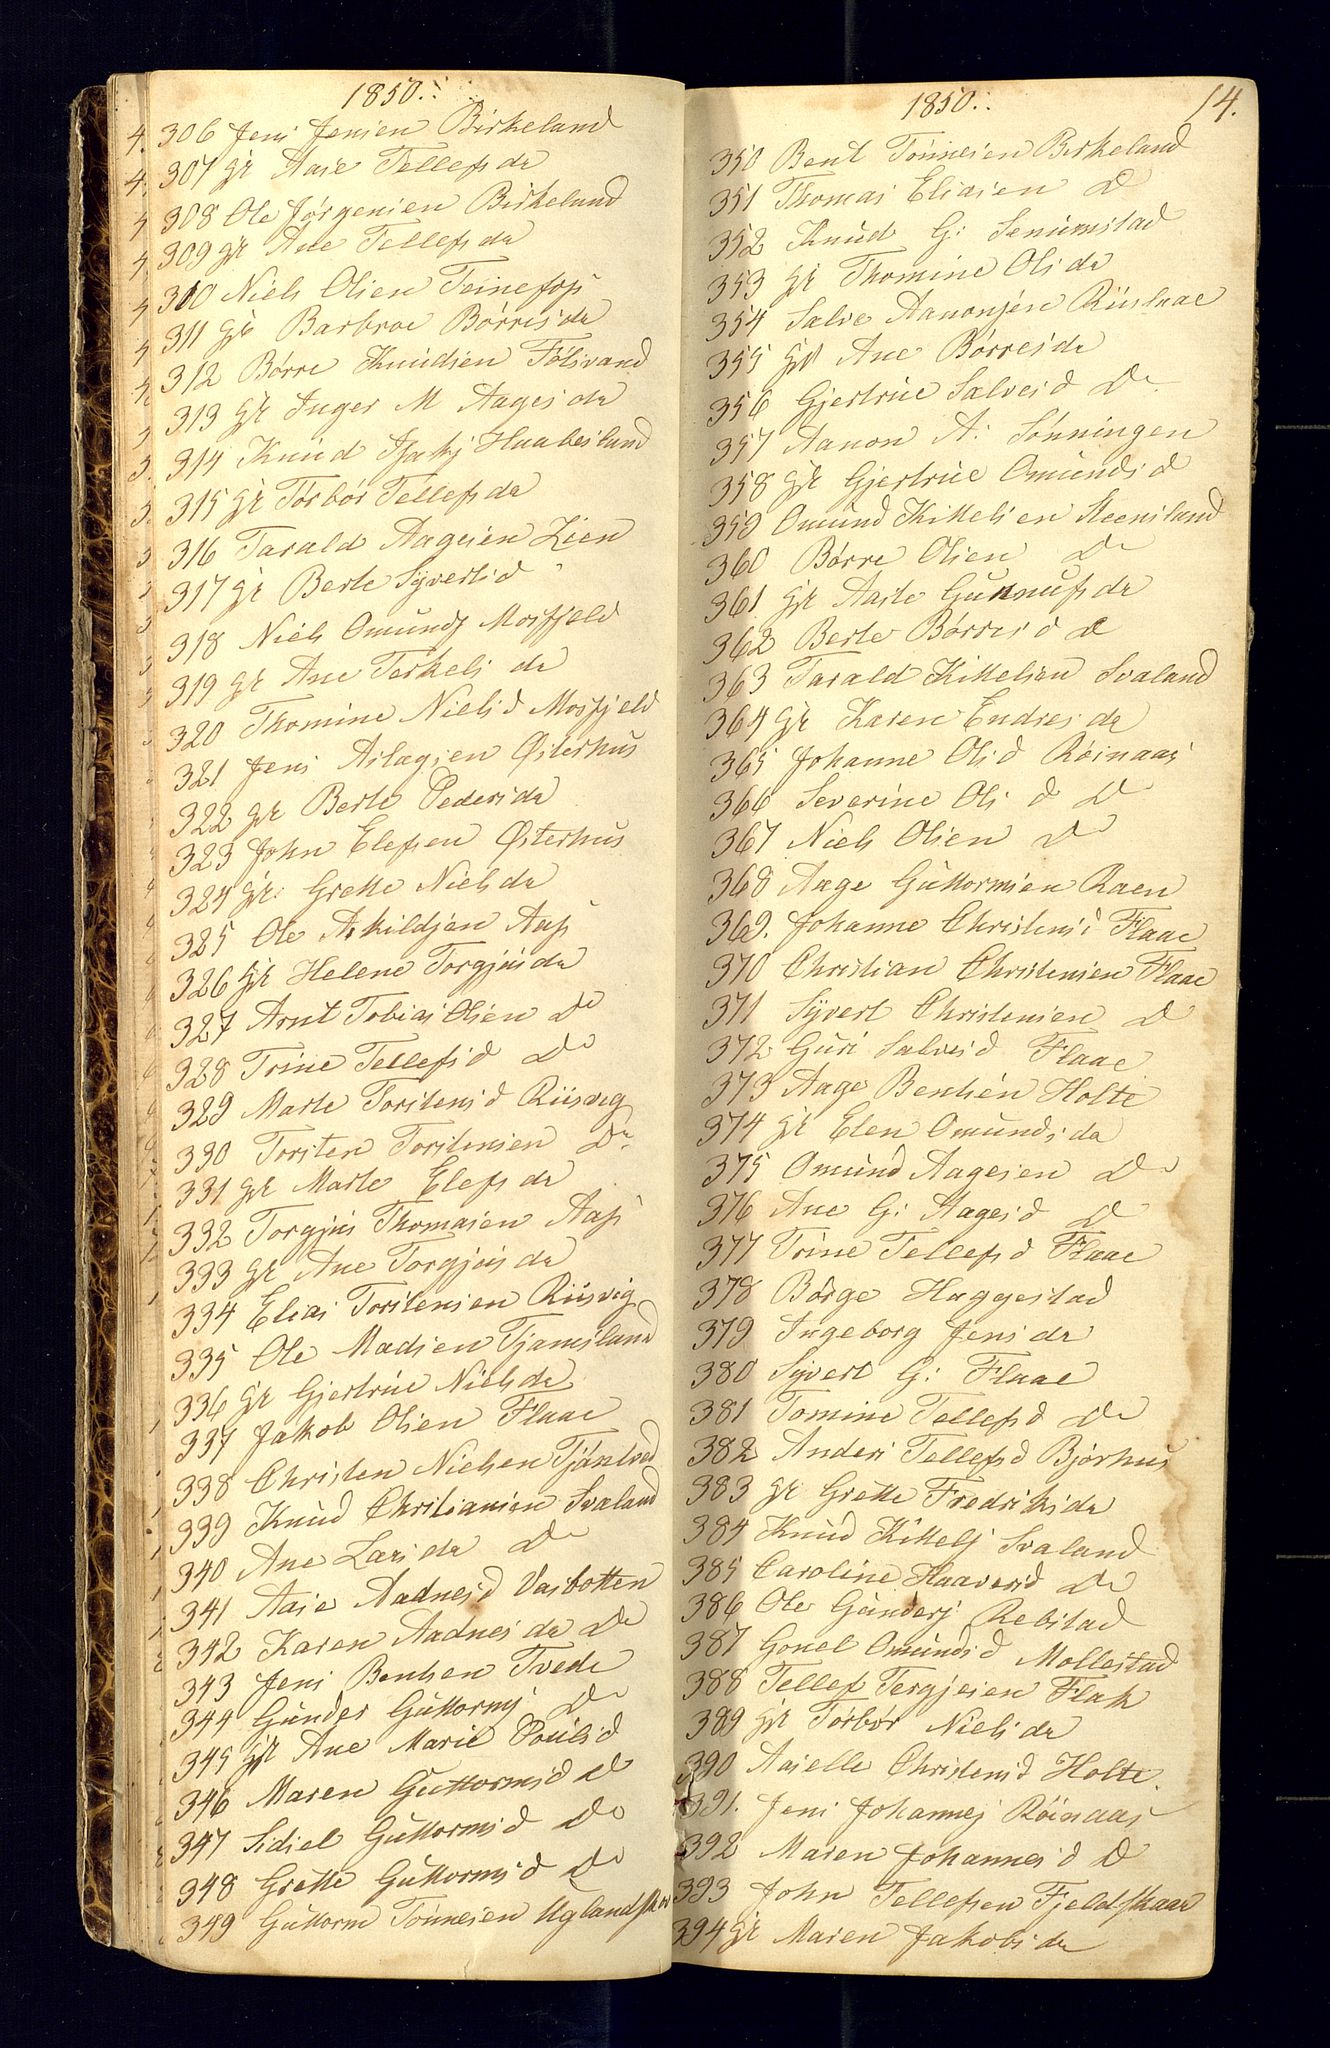 1850.
306 Jens Jensen Birkeland
307 gk Aase Tellefsda
308 Ole Jørgensen Birkeland
309 gk Ane Tellefsda
310 Niels Olsen Teinefos
311 gk Barbroe Børresda
312 Børre Knudsen Følsvand
313 gk Inger M Aagesda
314 Knud Isaks Haabesland
315 gk Torbor Tellefsda
316 Tarald Aagesen Lien
317 gk Berte Syvertsd
318 Niels Omunds Mosfjeld
319 gk Ane Terkelsda
320 Thomine Nielsd Mosfjeld
321 Jens Aslagsen Østerhus
322 gk Berte Pedersda
323 John Elefsen Østerhus
324 gk: Grette Nielsda
325 Ole Askildsen Aas
326 gk Helene Torgjusda
327 Arnt Tobias Olsen Do
328 Trine Tellefsd Do
329 Marte Torstensd Riisvig
330 Torsten Torstensen Do
331 gk Marte Elefsda
332 Torgjus Thomasen Aas
333 gk Ane Torgjusda
334 Elias Torstensen Riisvig
335 Ole Madsen Tjamsland
336 gk Gjertrue Nielsda
337 Jakob Olsen Flaae
338 Christen Nielsen
339 Knud Christiansen Svaland
340 Ane Larsda Do
341 Aase Aadnesd Vasbotten
342 Karen Aadnesda Do
343 Jens Bentsen Tvede
344 Gunder Guttorms Do
345 gk Ane Marie Poulsd
346 Maren Guttormsd Do
347 Sidsel Guttormsd Do
348 Grette Guttormsd Do
349 Guttorm Tønnesen Uglandskar
1850. 14.
350 Bent Tønnesen Birkeland
351 Thomas Eliasen Do
352 Knud G: Senumstad
353 gk Thomine Olsda
354 Salve Aanonsen Riislaae
355 gk Ane Børresda
356 Gjertrue Salvesd Do
357 Aanon A: Sønningen
358 gk Gjertrue Omundsd
359 Omund Kittelsen Steensland
360 Børre Olsen Do
361 gk Aaste Gunnufsda
362 Berte Børresd Do
363 Tarald Kittelsen Svaland
364 gk Karen Endresda
365 Johanne Olsd Røinaas
366 Severine Olsd Do
367 Niels Olsen Do
368 Aage Guttormsen Raen
369. Johanne Christensd Flaae
370 Christian Christensen Flaae
371 Syvert Christensen Do
372 Guri Salvesd Flaae
373 Aage Bentsen Holte
374 gk Elen Omundsda
375 Omund Aagesen Do
376 Ane G: Aagesd Do
377 Trine Tellefsd Flaae
378 Børge Haggestad
379 Ingeborg Jensda
380 Syvert G: Flaae
381 Tomine Tellefsd Do
382 Anders Tellefsd Bjorhus
383 gk Grette Fredriksda
384 Knud Kittels Svaland
385 Caroline Haaversd Do
386 Ole Gunders Rebstad
387 Gonel Omundsd Mollestad
388 Tellef Tergjesen Flak
389 gk Torbor Nielsda
390 Aaselle Christensd Holte.
391. Jens Johannes Røinaas
392 Maren Johannesd Do
393 John Tellefsen Fjeldskaar
394 gk Maren Jakobsda